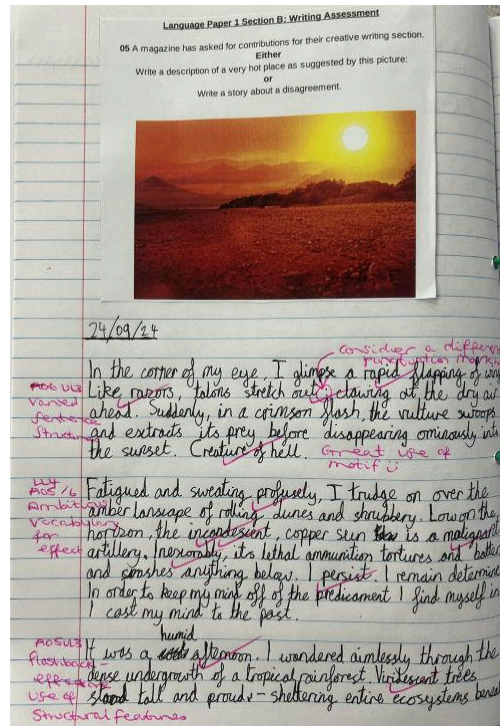 Language Paper 1 Section B: Writing Assessment
05 A magazine has asked for contributions for their creative writing section.
Either
Write a description of a very hot place as suggested by this picture:
or
Write a story about a disagreement.
24/09/24
consider a differen
punctuation mark
In the corner of my eye, I glimpse a rapid flapping of wing
AO6 UL3
Varied
Sentence
Structure
Like razors, talons stretch out; clawing at the dry air
ahead. Suddenly, in a crimson flash, the vulture swoops
and extracts its prey before disappearing ominously into
the sunset. Creature of hell.
Great use of
motif
AO5/6
Ambitious
Vocabulary
for
effect
Fatigued and sweating profusely, I trudge on over the
amber lanscape of rolling dunes and shrubbery. Low on the
horizon, the incandescent, copper sun is a malignant
artillery. Inexorably, its lethal ammunition tortures and batter
and smashes anything below. I persist. I remain determine
In order to keep my mind off of the predicament I find myself in
I cast my mind to the past.
AO5UL3
flashback -
effective
use of
Structural features
humid
It was a afternoon. I wandered aimlessly through the
dense undergrowth of a tropical rainforest. Viridescent trees
stood tall and proud - sheltering entire ecosystems benea